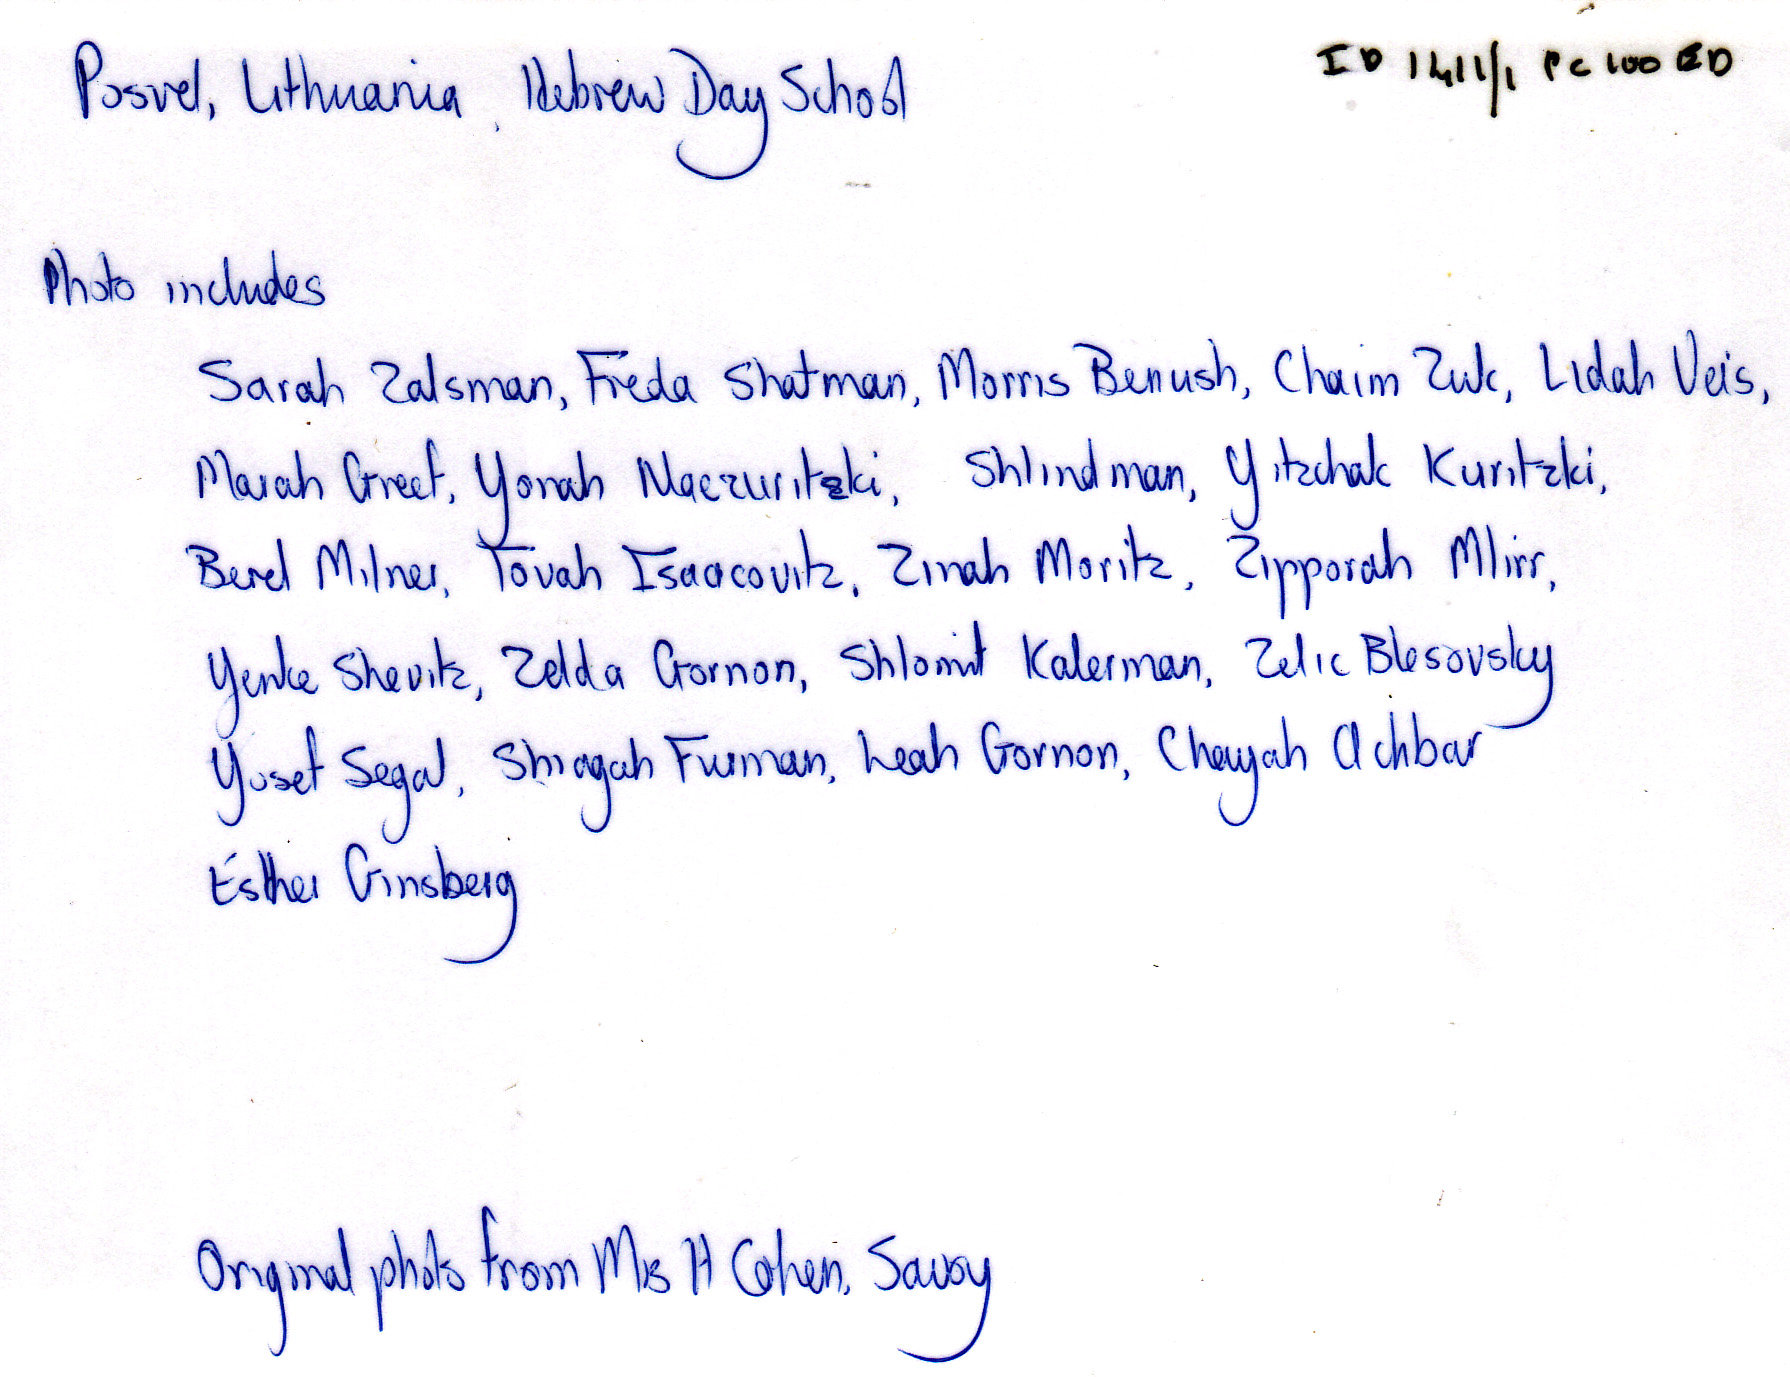 Posvel, Lithuania, Hebrew Day School
ID 1411/1 PC 100 ED
Photo includes
Sarah Zalsman, Freda Shatman, Morris Benush, Chaim Zuk, Lidah Veis,
Marah Greef, Yonah Naezuritzki, Shlindman, Yitzchak Kuritzki,
Berel Milner, Tovah Isaacovitz, Zinah Moritz, Zipporah Mlirr,
Yenke Shevitz, Zelda Gornon, Shlomit Kalerman, Zelic Blesovsky
Yosef Segal, Shragah Furman, Leah Gornon, Chayah Achbar
Esther Ginsberg
Original photo from Mrs H Cohen, Savoy